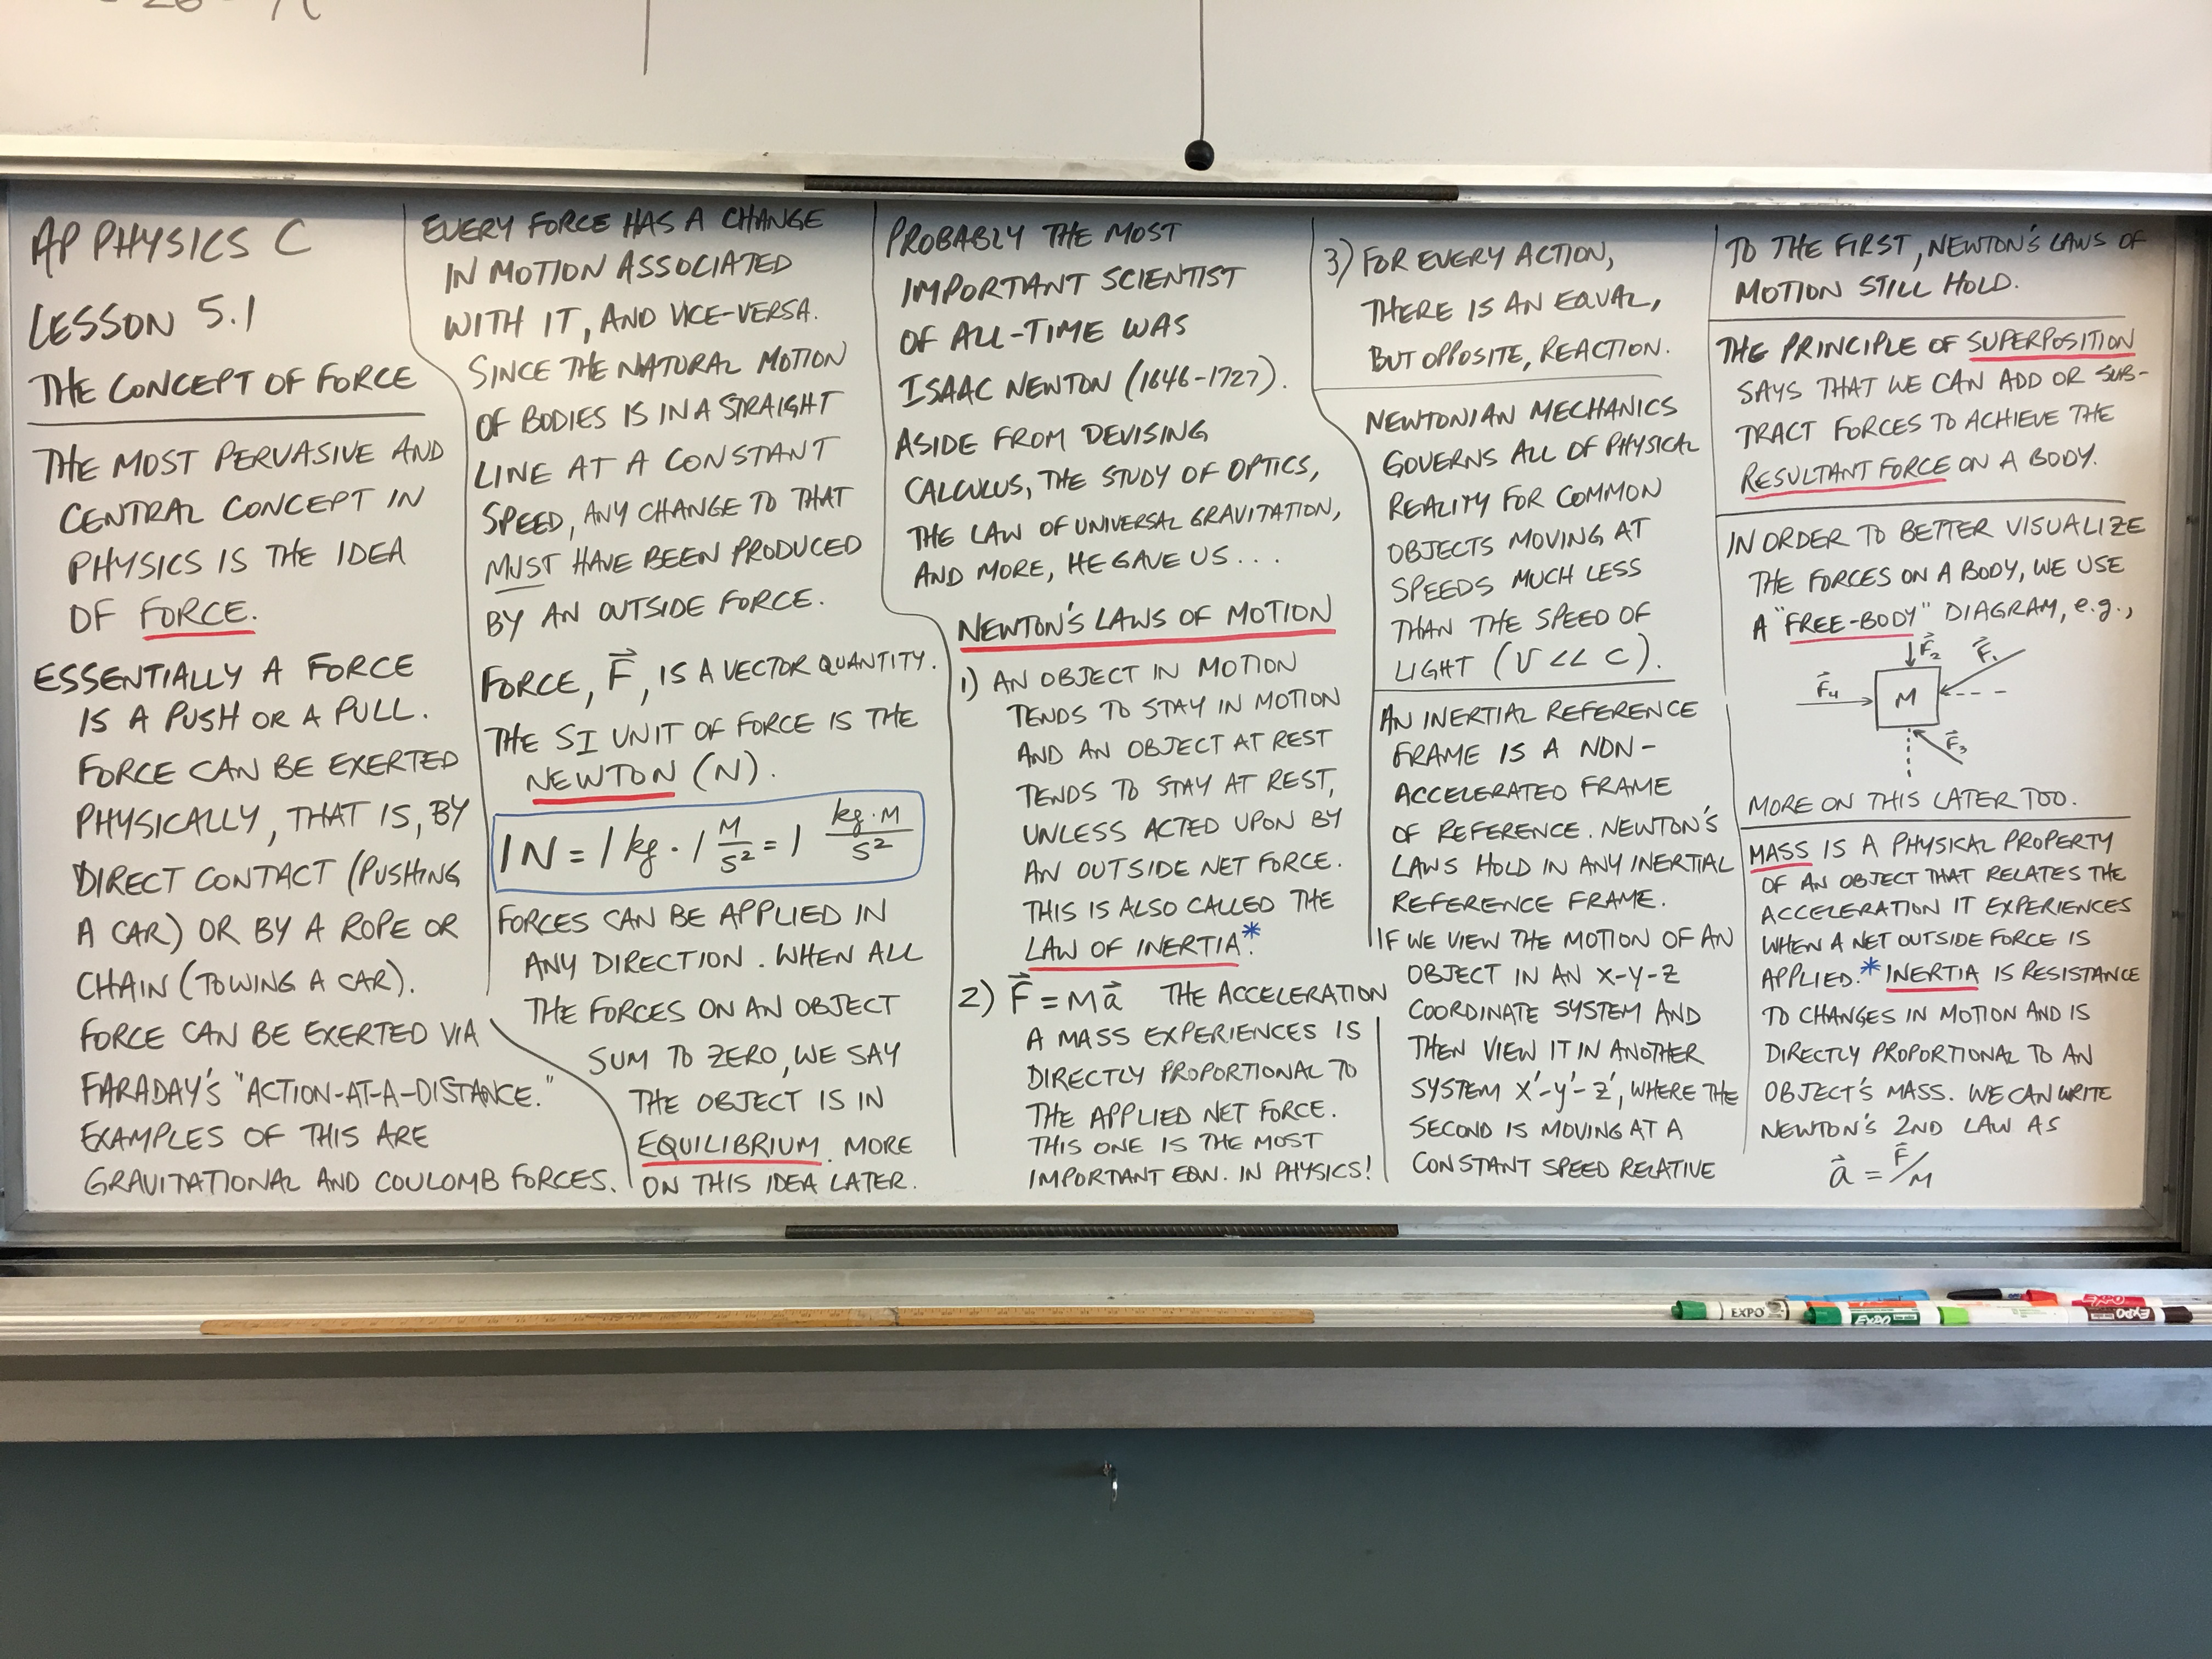 AP PHYSICS C
LESSON 5.1
THE CONCEPT OF FORCE
THE MOST PERVASIVE AND
CENTRAL CONCEPT IN
PHYSICS IS THE IDEA
OF FORCE.
ESSENTIALLY A FORCE
IS A PUSH OR A PULL.
FORCE CAN BE EXERTED
PHYSICALLY, THAT IS, BY
DIRECT CONTACT (PUSHING
A CAR) OR BY A ROPE OR
CHAIN (TOWING A CAR).
FORCE CAN BE EXERTED VIA
FARADAY'S "ACTION-AT-A-DISTANCE."
EXAMPLES OF THIS ARE
GRAVITATIONAL AND COULOMB FORCES.
EVERY FORCE HAS A CHANGE
IN MOTION ASSOCIATED
WITH IT, AND VICE-VERSA.
SINCE THE NATURAL MOTION
OF BODIES IS IN A STRAIGHT
LINE AT A CONSTANT
SPEED, ANY CHANGE TO THAT
MUST HAVE BEEN PRODUCED
BY AN OUTSIDE FORCE.
FORCE, F⃗, IS A VECTOR QUANTITY.
THE SI UNIT OF FORCE IS THE
NEWTON (N).
1N = 1 kg · 1 M/S² = 1 kg·M/S²
FORCES CAN BE APPLIED IN
ANY DIRECTION. WHEN ALL
THE FORCES ON AN OBJECT
SUM TO ZERO, WE SAY
THE OBJECT IS IN
EQUILIBRIUM. MORE
ON THIS IDEA LATER.
PROBABLY THE MOST
IMPORTANT SCIENTIST
OF ALL-TIME WAS
ISAAC NEWTON (1646-1727).
ASIDE FROM DEVISING
CALCULUS, THE STUDY OF OPTICS,
THE LAW OF UNIVERSAL GRAVITATION,
AND MORE, HE GAVE US...
NEWTON'S LAWS OF MOTION
1) AN OBJECT IN MOTION
TENDS TO STAY IN MOTION
AND AN OBJECT AT REST
TENDS TO STAY AT REST,
UNLESS ACTED UPON BY
AN OUTSIDE NET FORCE.
THIS IS ALSO CALLED THE
LAW OF INERTIA.*
2) F⃗ = Ma⃗ THE ACCELERATION
A MASS EXPERIENCES IS
DIRECTLY PROPORTIONAL TO
THE APPLIED NET FORCE.
THIS ONE IS THE MOST
IMPORTANT EQN. IN PHYSICS!
3) FOR EVERY ACTION,
THERE IS AN EQUAL,
BUT OPPOSITE, REACTION.
NEWTONIAN MECHANICS
GOVERNS ALL OF PHYSICAL
REALITY FOR COMMON
OBJECTS MOVING AT
SPEEDS MUCH LESS
THAN THE SPEED OF
LIGHT (V << C).
AN INERTIAL REFERENCE
FRAME IS A NON-
ACCELERATED FRAME
OF REFERENCE. NEWTON'S
LAWS HOLD IN ANY INERTIAL
REFERENCE FRAME.
IF WE VIEW THE MOTION OF AN
OBJECT IN AN X-Y-Z
COORDINATE SYSTEM AND
THEN VIEW IT IN ANOTHER
SYSTEM X'-Y'-Z', WHERE THE
SECOND IS MOVING AT A
CONSTANT SPEED RELATIVE
TO THE FIRST, NEWTON'S LAWS OF
MOTION STILL HOLD.
THE PRINCIPLE OF SUPERPOSITION
SAYS THAT WE CAN ADD OR SUB-
TRACT FORCES TO ACHIEVE THE
RESULTANT FORCE ON A BODY.
IN ORDER TO BETTER VISUALIZE
THE FORCES ON A BODY, WE USE
A "FREE-BODY" DIAGRAM, e.g.,
F⃗₂ F⃗₁
F⃗₄ M
F⃗₃
MORE ON THIS LATER TOO.
MASS IS A PHYSICAL PROPERTY
OF AN OBJECT THAT RELATES THE
ACCELERATION IT EXPERIENCES
WHEN A NET OUTSIDE FORCE IS
APPLIED. *INERTIA IS RESISTANCE
TO CHANGES IN MOTION AND IS
DIRECTLY PROPORTIONAL TO AN
OBJECT'S MASS. WE CAN WRITE
NEWTON'S 2ND LAW AS
a⃗ = F⃗/M
EXPO
EXPO
EXPO
EXPO